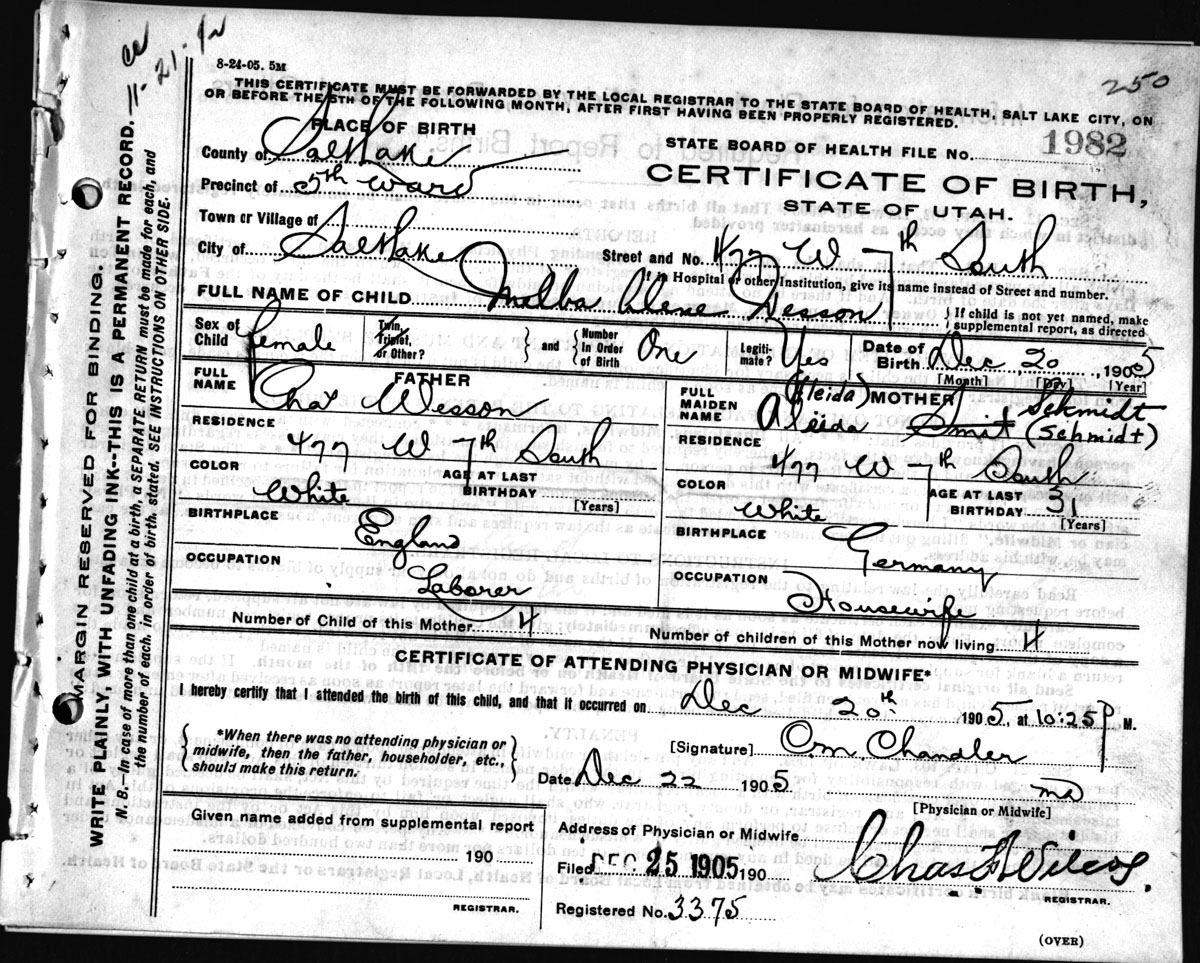 8-24-05. 5M
250
11-21-42
THIS CERTIFICATE MUST BE FORWARDED BY THE LOCAL REGISTRAR TO THE STATE BOARD OF HEALTH, SALT LAKE CITY, ON
OR BEFORE THE 5TH OF THE FOLLOWING MONTH, AFTER FIRST HAVING BEEN PROPERLY REGISTERED.
PLACE OF BIRTH
STATE BOARD OF HEALTH FILE NO. 1982
County of Salt Lake
CERTIFICATE OF BIRTH,
Precinct of 5th Ward
STATE OF UTAH.
Town or Village of
City of Salt Lake Street and No. 477 W 7th South
If in Hospital or other Institution, give its name instead of Street and number.
FULL NAME OF CHILD Melba Alene Wesson { If child is not yet named, make supplemental report, as directed
Sex of Child Female Twin, Triplet, or Other? } and { Number in Order of Birth One Legitimate? Yes Date of Birth Dec 20, 1905
[Month] [Day] [Year]
FULL NAME FATHER
Chas Wesson
FULL MAIDEN NAME MOTHER
(Aleida) Schmidt
Aleida Smit (Schmidt)
RESIDENCE 477 W 7th South
RESIDENCE 477 W 7th South
COLOR White AGE AT LAST BIRTHDAY [Years]
COLOR White AGE AT LAST BIRTHDAY 31 [Years]
BIRTHPLACE England
BIRTHPLACE Germany
OCCUPATION Laborer
OCCUPATION Housewife
Number of Child of this Mother 4 Number of children of this Mother now living 4
CERTIFICATE OF ATTENDING PHYSICIAN OR MIDWIFE*
I hereby certify that I attended the birth of this child, and that it occurred on Dec 20th 1905, at 10:25 P M.
{ *When there was no attending physician or midwife, then the father, householder, etc., should make this return. }
[Signature] O.M. Chandler
Date Dec 22 1905 MD
[Physician or Midwife]
Given name added from supplemental report
190
REGISTRAR.
Address of Physician or Midwife
Filed DEC 25 1905 190 Chas F Wilcox.
REGISTRAR.
Registered No. 3375
(OVER)
MARGIN RESERVED FOR BINDING.
WRITE PLAINLY, WITH UNFADING INK--THIS IS A PERMANENT RECORD.
N. B.--In case of more than one child at a birth, a SEPARATE RETURN must be made for each, and
the number of each, in order of birth, stated. SEE INSTRUCTIONS ON OTHER SIDE.